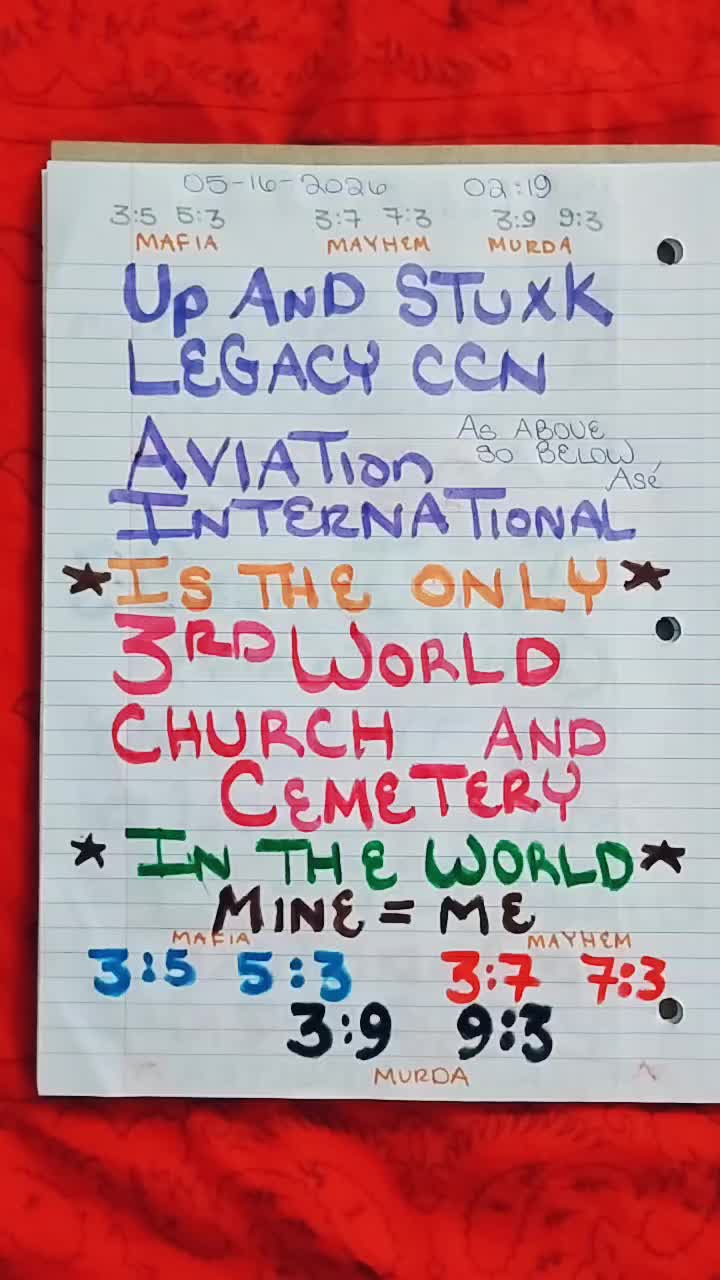 05-16-2026 02:19
3:5 5:3 3:7 7:3 3:9 9:3
MAFIA MAYHEM MURDA
Up AND STUXK
LEGACY CCN
AVIATion
As ABOVE
SO BELOW
Asé
INTERNATIONAL
★ IS THE ONLY ★
3RD WORLD
CHURCH AND
CEMETERY
★ IN THE WORLD ★
MINE = ME
MAFIA MAYHEM
3:5 5:3 3:7 7:3
3:9 9:3
MURDA